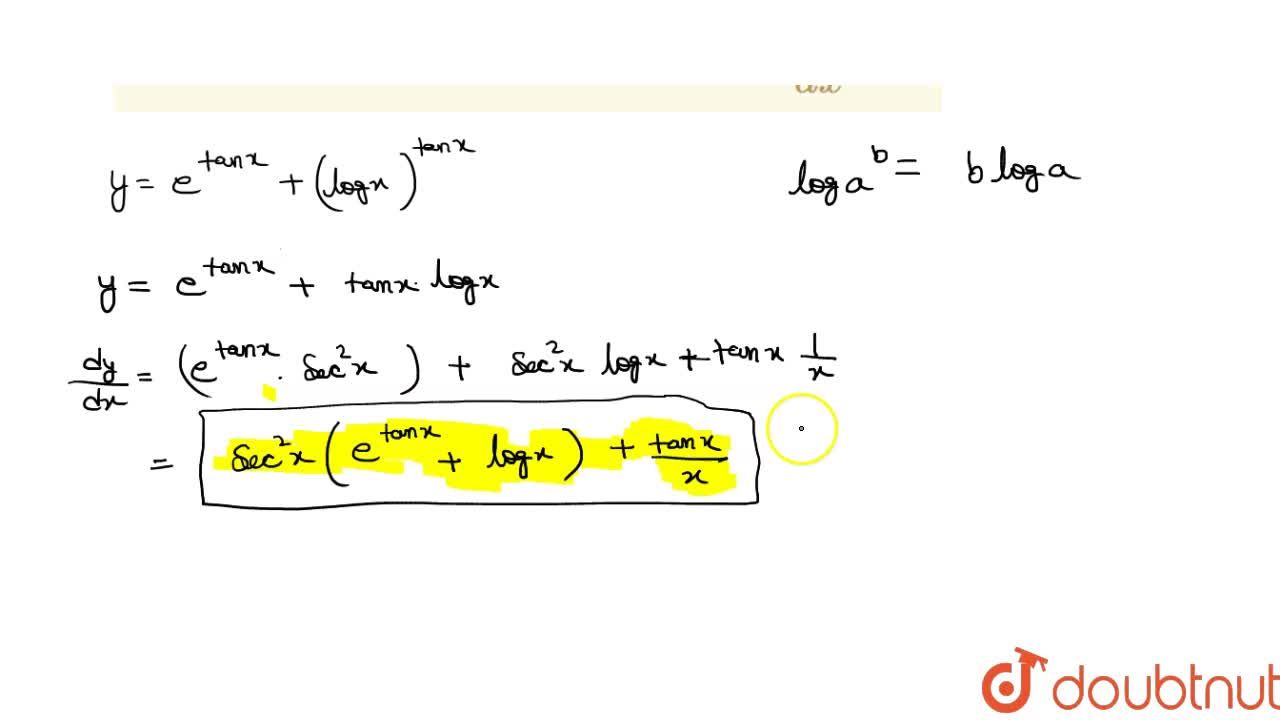 y = e^tanx + (logx)^tanx
log a^b = b log a
y = e^tanx + tanx · logx
dy/dx = (e^tanx · sec²x) + sec²x logx + tanx 1/x
= sec²x (e^tanx + logx) + tanx/x
doubtnut